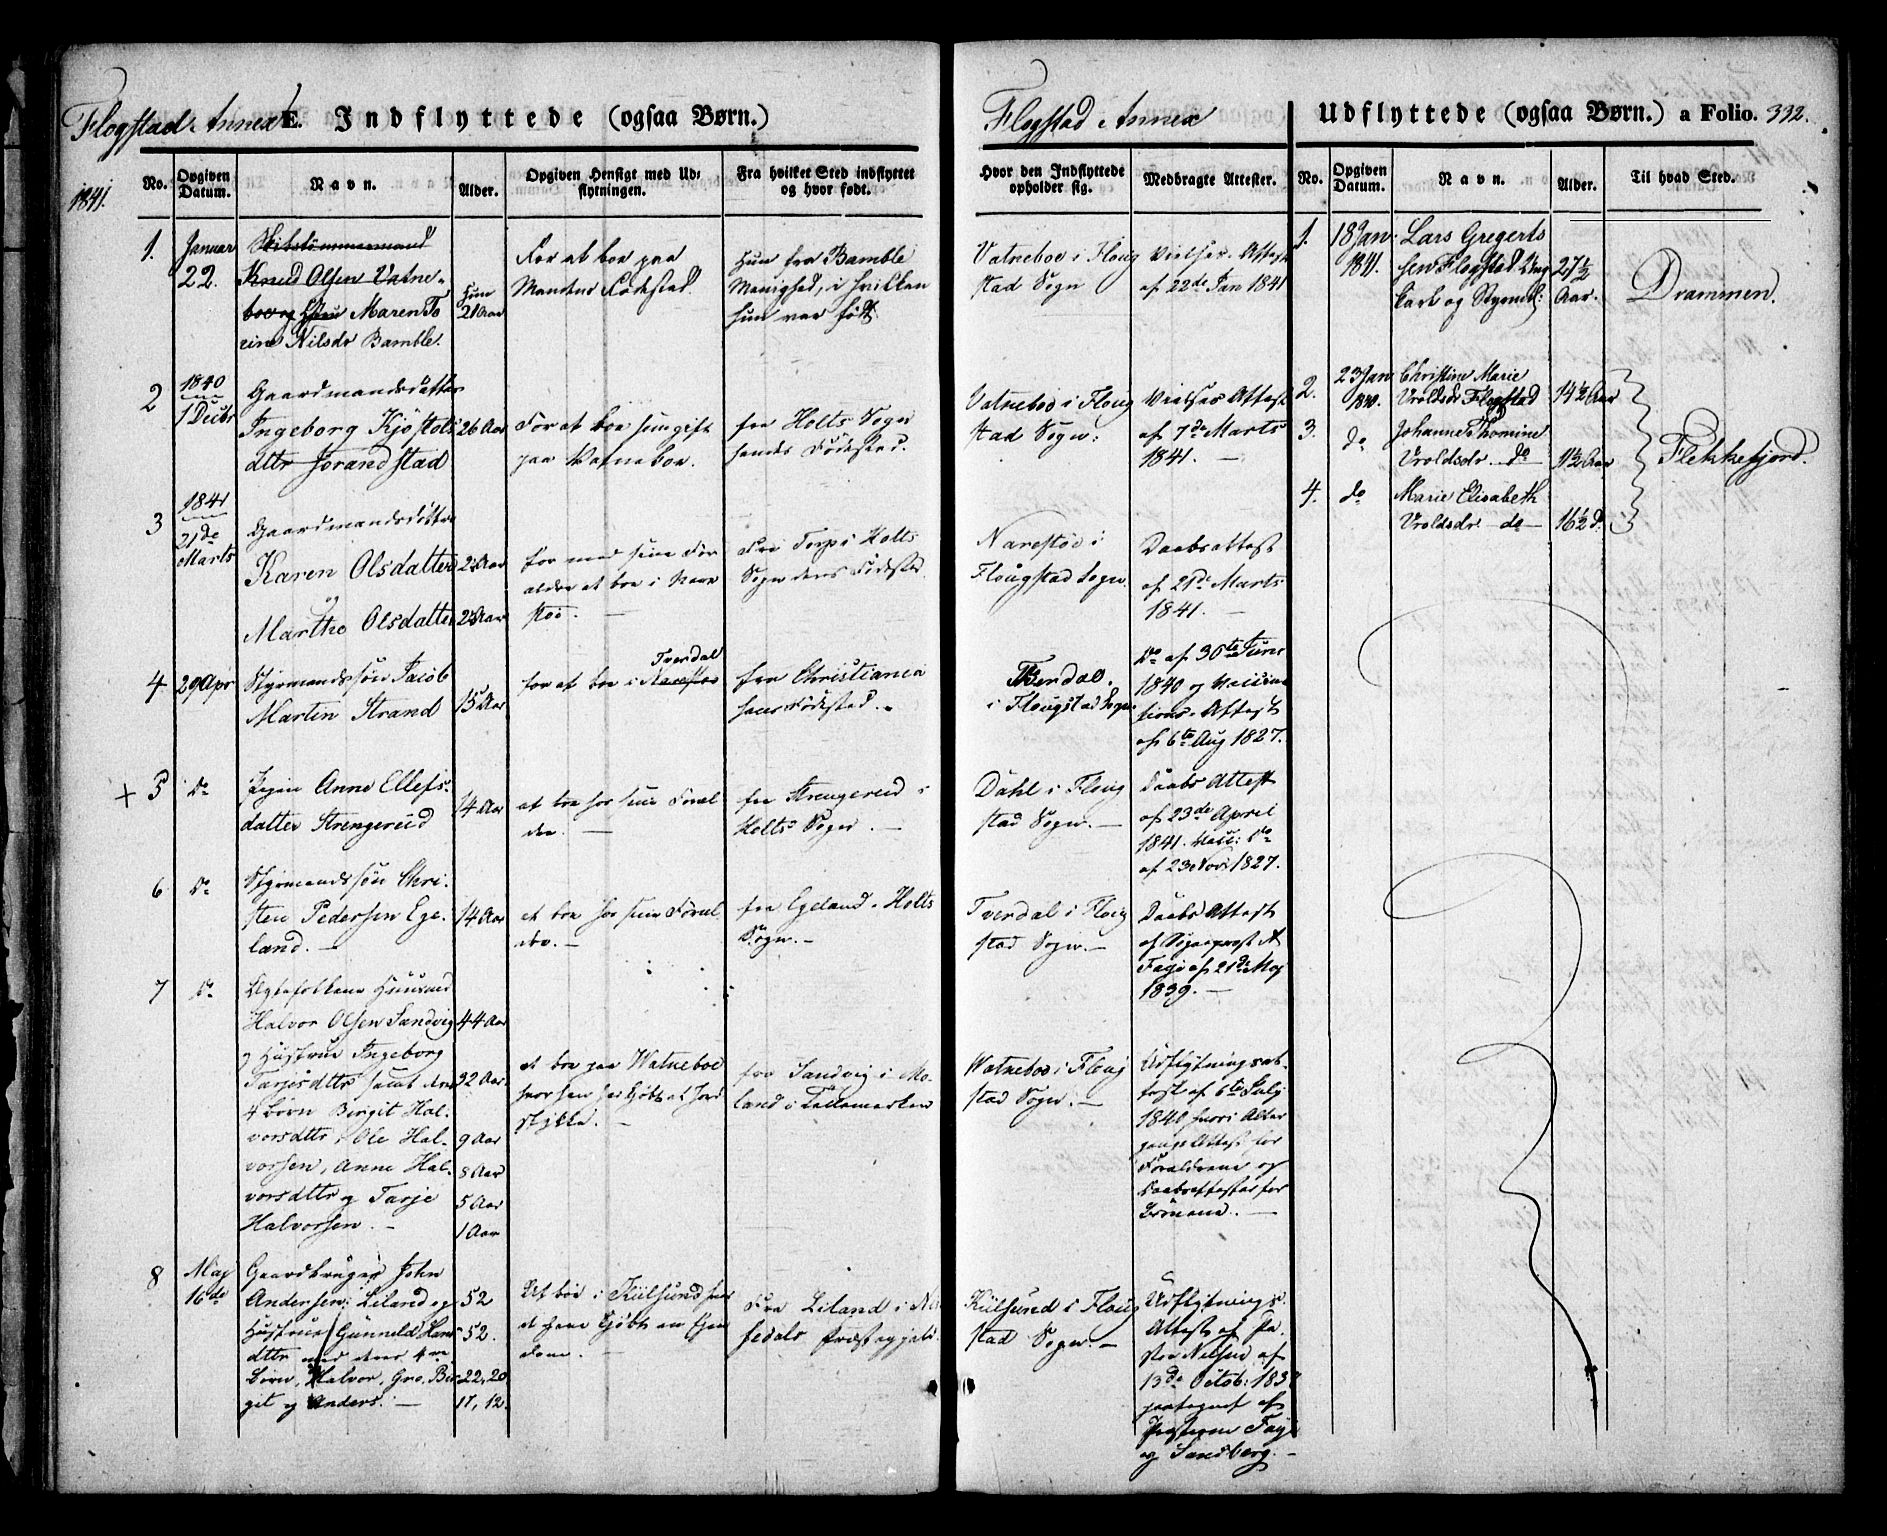 Flogstad Annex E. Indflyttede (ogsaa Børn.)
1841.
No. Opgiven Datum. Navn. Alder. Opgiven Hensigt med Udflytningen. Fra hvilket Sted indflyttet og hvor født.
1. Januar 22.
Skibstømmermand
Knud Olsen Vatne-
boe og Hustru Maren To
rine Nilsdr Bamble.
Hun 21 Aar
For at boe paa
Mandens Fødested.
Hun fra Bamble
Menighed, i hvilken
hun var født.
2 1840 1 Decbr
Gaardmandsdatter
Ingeborg Kjøstols
dttr Jorandstad
26 Aar
For at boe som gift
paa Vatneboe.
fra Holts Sogn
hendes Fødested.
3 1841 21de Marts
Gaardmandsdøttre
Karen Olsdatter
og
Marthe Olsdatter
For med sine For
ældre at boe i Nare
støe. —
Fra Torp i Holts
Sogn deres Fødested.
4 29 Apr
Styrmandssøn Jacob
Martin Strand
15 Aar
for at boe i Narestøe
Tverdal
fra Christiania
hans Fødested.
+ 5 Do
Pigen Anne Ellefs-
datter Strengereid
14 Aar
at boe hos sine Foræl
dre. —
fra Strengereid i
Holts Sogn. —
6 Do
Styrmandssøn Chri-
sten Pedersen Ege-
land. —
14 Aar
at boe hos sine Foræl
dre. —
fra Egeland i Holts
Sogn. —
7 Do
Ægtefolkene Huusmand
Halvor Olsen Sandvig
og Hustrue Ingeborg
Tarjesdttr samt deres
4 Børn Birgit Hal-
vorsdttr, Ole Hal-
vorsen, Anne Hal-
vorsdttr og Tarje
Halvorsen. —
44 Aar
32 Aar
9 Aar
8 Aar
5 Aar
1 Aar
at boe paa Watneboe
hvor han har kjøbt et Jord
stykke. —
fra Sandvig i Mo-
land i Tellemarken
8 Maj 16de
Gaardbruger John
Andersen Liland og
Hustrue Gunneld Hans
dttr med deres 4re
Børn, Halvor, Gro, Bir
git og Anders. —
52
52.
22, 20
17, 12.
At boe i Kiilsund hvor
at have kjøbt en Ejen
dom. —
Fra Liland i Ni-
sedals Præstegjeld.
Flogstad Annex Udflyttede (ogsaa Børn.) a Folio. 332.
Hvor den Indflyttede opholder sig. Medbragte Attester. No. Opgiven Datum. Navn. Alder. Til hvad Sted.
Vatneboe i Floug
stad Sogn
Vielses-Attest
af 22de Jan 1841
Vatneboe i Floug
stad Sogn:
Vielses Attest
af 7de Marts
1841. —
Narestøe i
Flougstad Sogn.
Daabsattest
af 21de Marts
1841. —
Tverdal.
i Flougstad Sogn
Do af 30te Juni
1840 og Vaccina
tions-Attest
af 6te Aug 1827.
Dahl i Floug
stad Sogn. —
Daabs Attest
af 23de April
1841. Vacc: Do
af 23 Nov: 1827.
Tverdal i Floug
stad Sogn. —
Daabs Attest
af Sogneprest A
Faye af 21de Maj
1839. —
Watneboe i Floug
stad Sogn. —
Udflytningsat-
test af 6te July
1840 hvori Alter
gangs Attest for
Forældrene og
Daabsattester for
Børnene. —
Kiilsund i Floug
stad Sogn. —
Udflytnings-
Attest af Pa-
stor Nielsen af
13de Octob: 183
paategnet af
Præsterne Faye
og Sandberg. —
1. 18 Jan: 1841.
Lars Gregerts
sen Flogstad Ung
karl og Styrmd:
27½ Aar.
Drammen.
2. 23 Jan 1840.
Christine Marie
Vroldsdr Flogstad
14½ Aar
3. do
Johanne Thomine
Vroldsdr do
11½ Aar
4. do
Marie Elisabeth
Vroldsdr do
16½ do.
Flekkefjord.